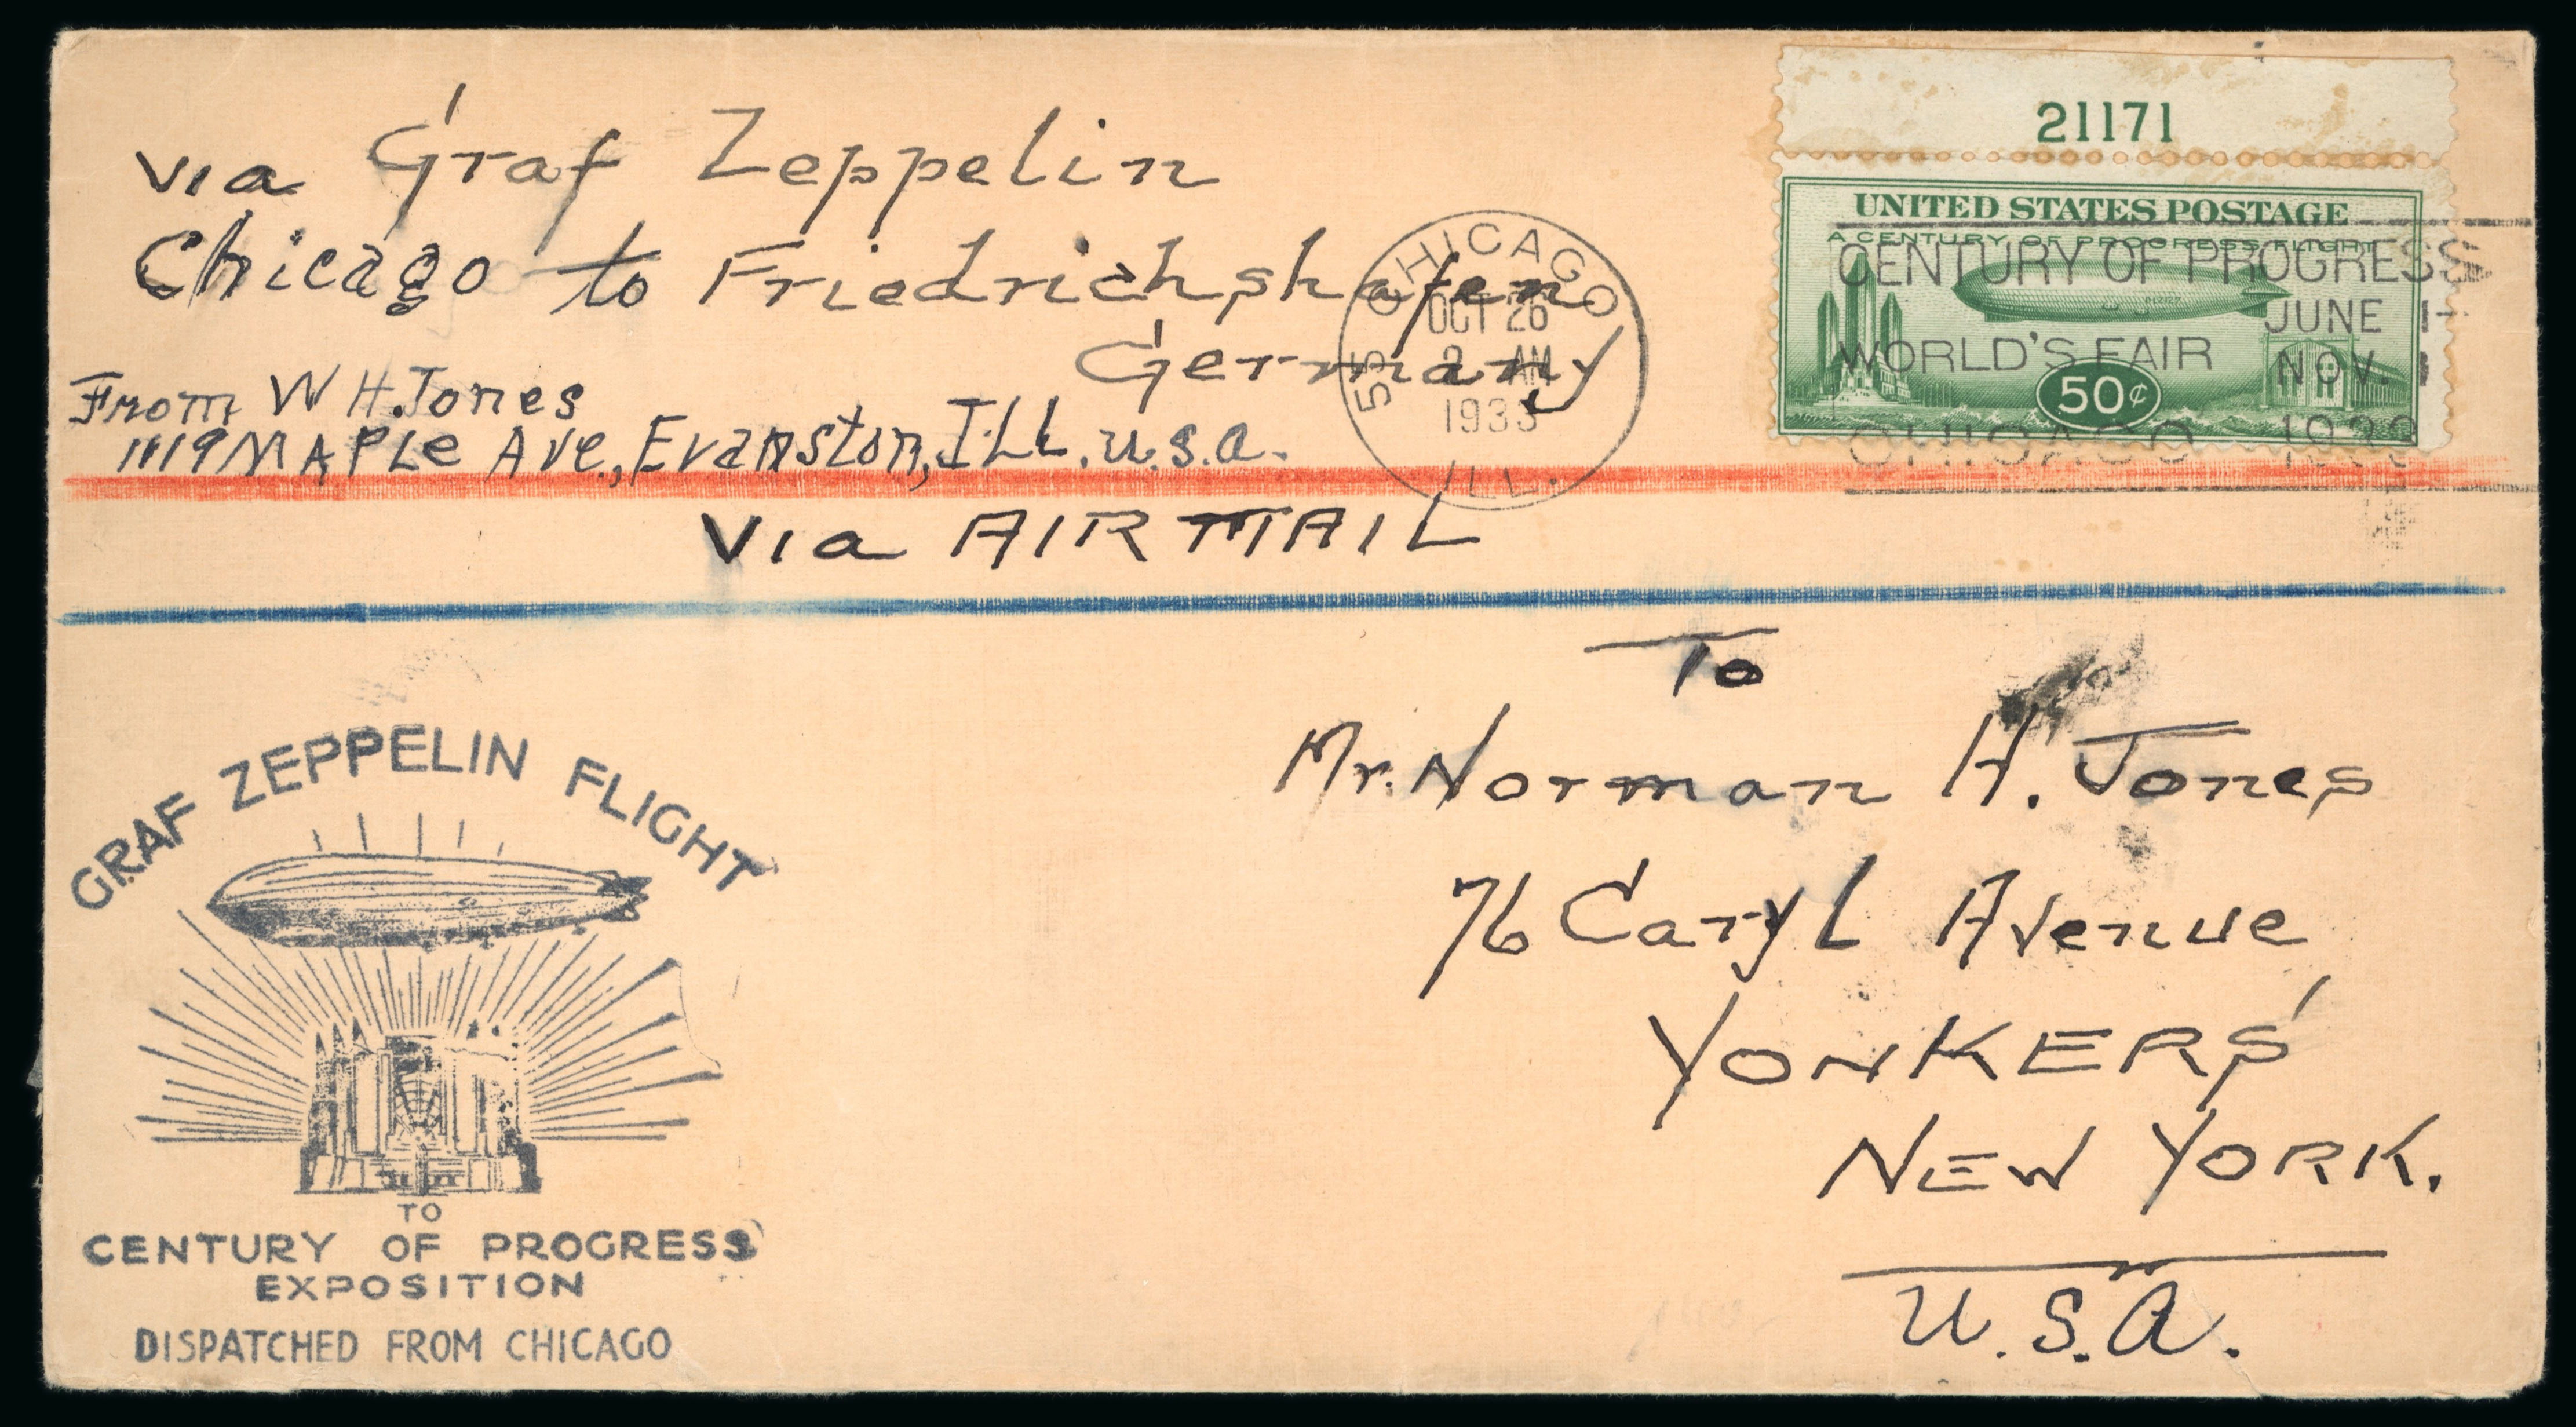 via Graf Zeppelin
Chicago to Friedrichshafen
Germany
From W H. Jones
1119 MAPLE Ave., Evanston, ILL. U.S.A.
Via AIR MAIL
CHICAGO
OCT 26
2 AM
1933
ILL.
21171
UNITED STATES POSTAGE
A CENTURY OF PROGRESS FLIGHT
50¢
CENTURY OF PROGRESS
JUNE 1
WORLD'S FAIR NOV.
CHICAGO 1933
To
Mr. Norman H. Jones
76 Caryl Avenue
YONKERS
NEW YORK.
U.S.A.
GRAF ZEPPELIN FLIGHT
TO
CENTURY OF PROGRESS
EXPOSITION
DISPATCHED FROM CHICAGO